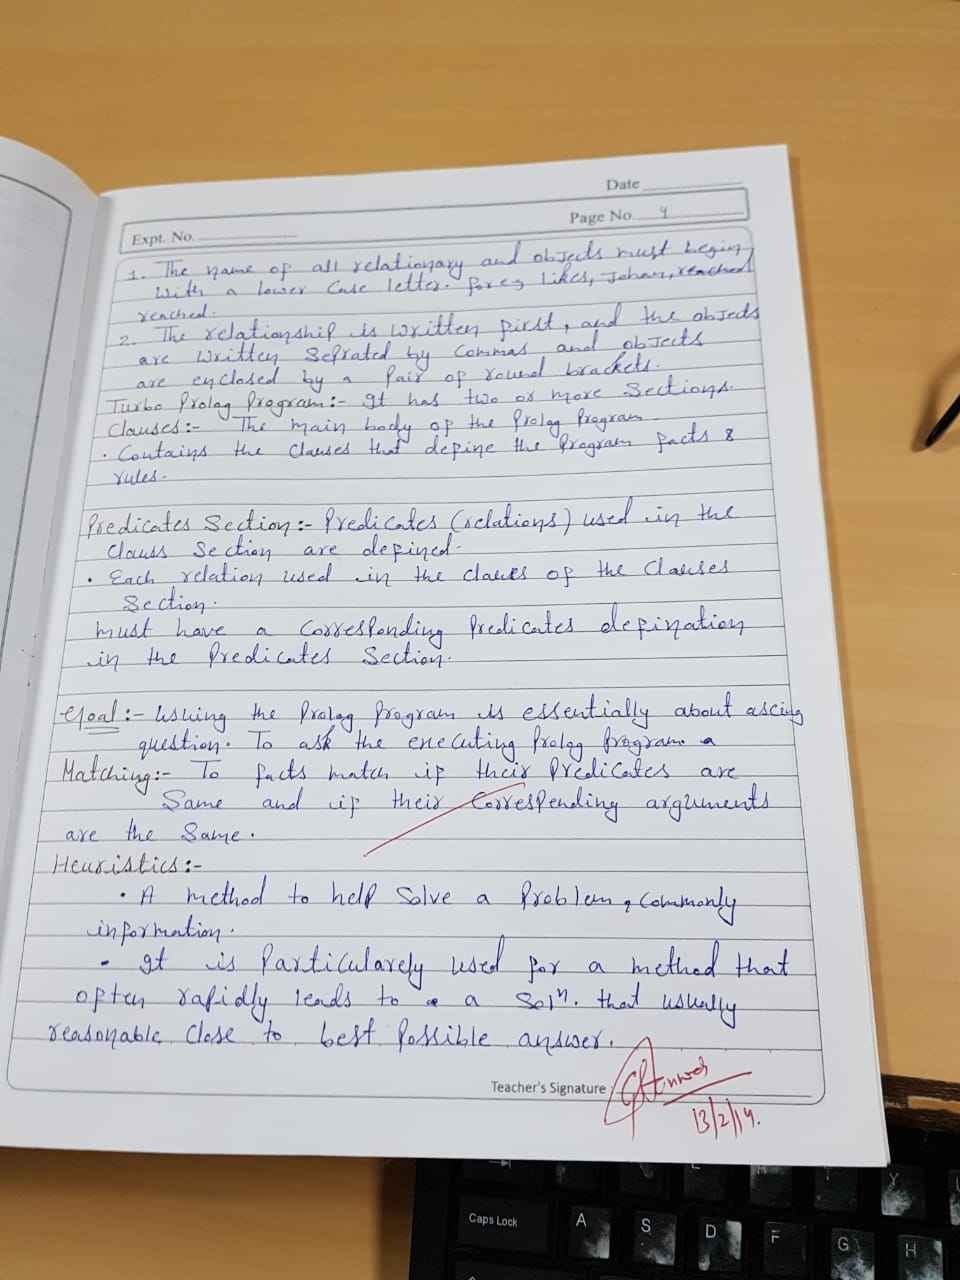 Date
Page No. 4
Expt. No.
1. The name of all relationary and objects must begin
with a lower case letter. for eg likes, Johan, reached
reached.
2. The relationship is written first, and the objects
are written Sefrated by commas and objects
are enclosed by a pair of round brackets.
Turbo Prolog Program:- It has two or more Sections.
Clauses:- The main body of the Prolog Program
• Contains the Clauses that define the Program facts &
rules.
Predicates Section:- Predicates (relations) used in the
Clauss Section are defined.
• Each relation used in the claues of the Clauses
Section.
must have a corresponding Predicates defination
in the Predicates Section.
Goal:- Usuing the Prolog Program is essentially about ascing
question. To ask the executing Prolog Program a
Matching:- To facts match if their Predicates are
Same and if their Correspending arguments
are the Same.
Heuristics:-
• A method to help Solve a Problem, Commonly
information.
• It is Particularely used for a method that
often rapidly leads to a Solⁿ. that usually
reasonable close to best Possible answer.
Teacher's Signature
13/2/19.
Caps Lock
A
S
D
F
G
H
Y